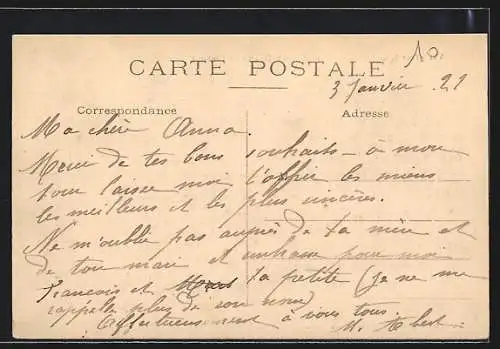 10
CARTE POSTALE
3 Janvier 22
Correspondance
Adresse
Ma chère Anna.
Merci de tes bons souhaits - à mon
tour laisse moi t'offrir les miens
les meilleurs et les plus sincères.
Ne m'oublie pas auprès de ta mère et
de ton mari et embrasse pour moi
François et ta petite (je ne me
rappelle plus de son nom)
Affectueusement à vous tous.
M.